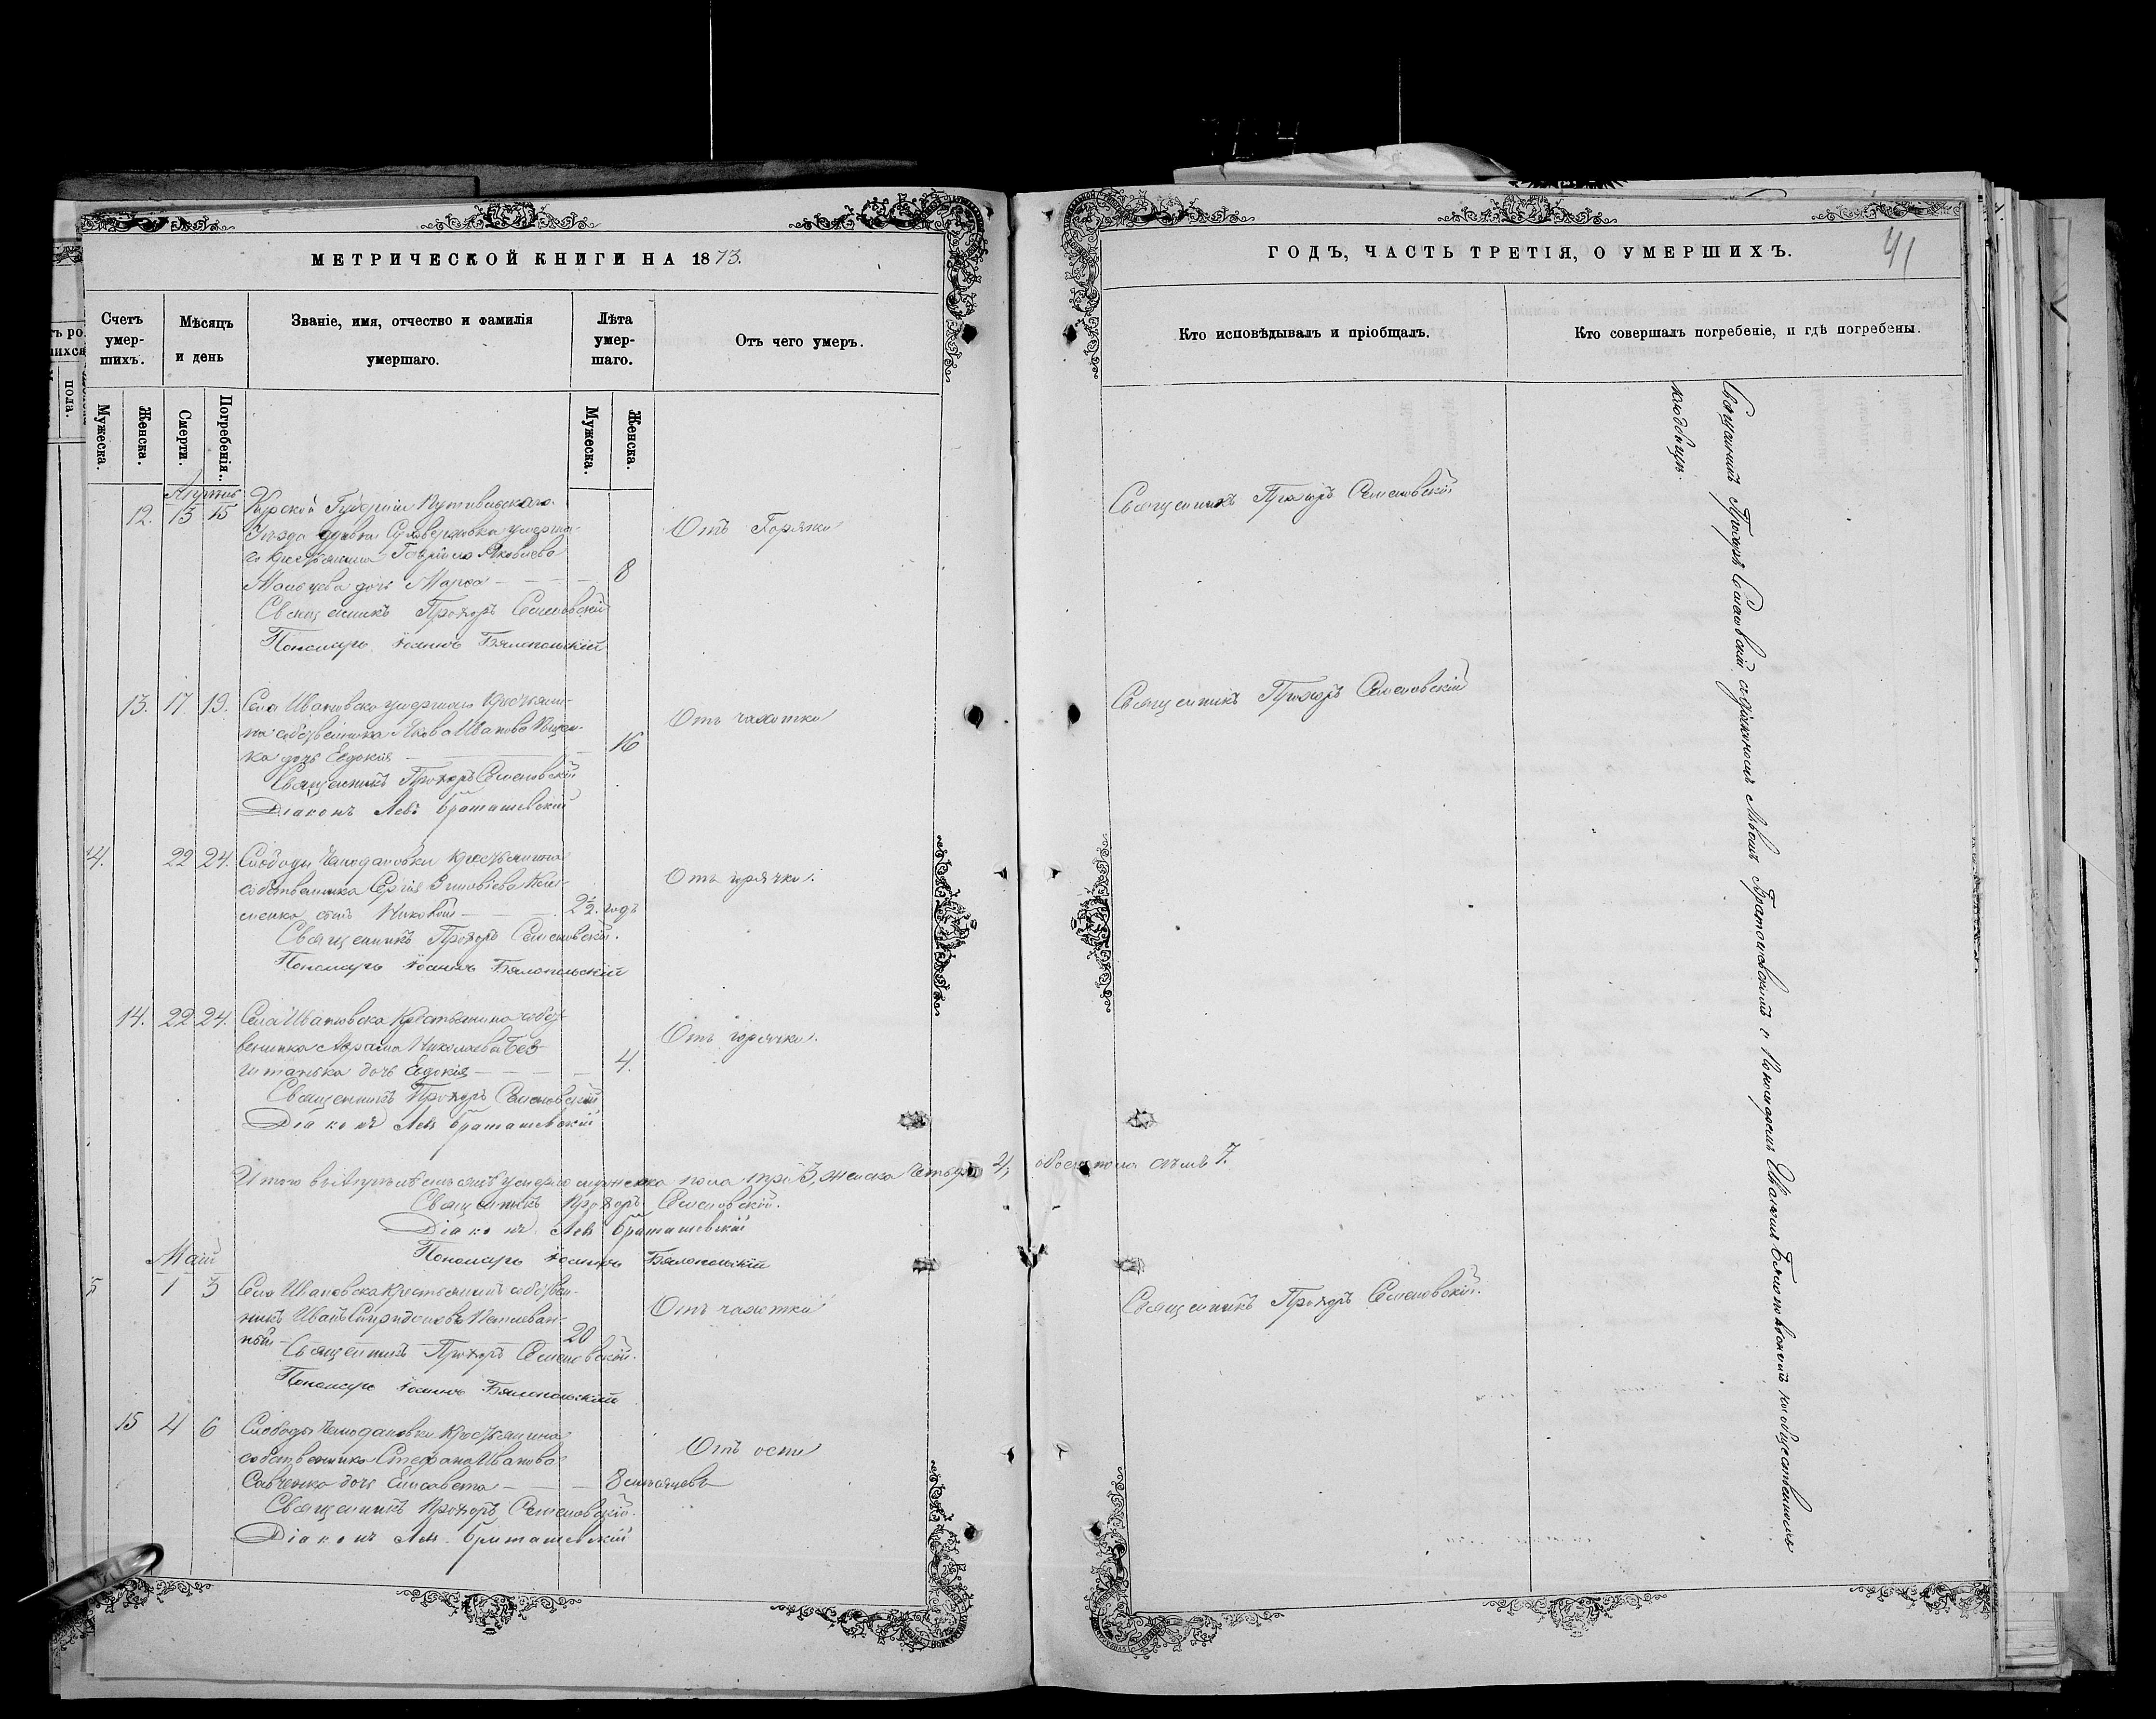 МЕТРИЧЕСКОЙ КНИГИ НА 1873.
Счетъ умер-шихъ.
Мѣсяцъ и день
Званіе, имя, отчество и фамилія умершаго.
Лѣта умер-шаго.
Отъ чего умеръ.
Мужеска.
Женска.
Смерти.
Погребенія.
Мужеска.
Женска.
12. 13 15 Курской Губерніи Путивльскаго
Уѣзда умерша-
го Крестьянина Гавріила Яковлева
Мальцева дочь Марѳа 8
Отъ Горячки
Священникъ Прохоръ Семеновскій
Пономарь Іоаннъ Бялопольскій
13. 17. 19. Села Ивановска умершаго Крестьяни-
на собственника Якова Иванова
ка дочь Евдокія 16
Отъ чахотки
Священникъ Прохоръ Семеновскій
Діаконъ Левъ Браташевскій
14. 22 24. Слободы Чемодановки Крестьянина
собственника Сергія Зиновіева Кли-
менка сынъ 2½. годъ
Отъ горячки.
Священникъ Прохоръ Семеновскій.
Пономарь Іоаннъ Бялопольскій
14. 22 24. Села Ивановска Крестьянина собст-
венника Аврама Николаева Без-
штанька дочь Евдокія 4.
Отъ горячки.
Священникъ Прохоръ Семеновскій
Діаконъ Левъ Браташевскій
Итого въ Апрѣлѣ мѣсяцѣ умерло мужеска пола три 3, женска четыре 4, обоего пола семь 7.
Священникъ Прохоръ Семеновскій.
Діаконъ Левъ Браташевскій
Пономарь Іоаннъ Бялопольскій
Май
1 3 Села Ивановска Крестьянинъ собствен-
никъ Иванъ Спиридоновъ
ный 20
Отъ чахотки
Священникъ Прохоръ Семеновскій.
Пономарь Іоаннъ Бялопольскій
15 4 6 Слободы Чемодановки Крестьянина
собственника Стефана Иванова
Савченка дочь Елисавета 8 мѣсяцевъ
Отъ оспы
Священникъ Прохоръ Семеновскій.
Діаконъ Левъ Браташевскій
ГОДЪ, ЧАСТЬ ТРЕТІЯ, О УМЕРШИХЪ.
41
Кто исповѣдывалъ и пріобщалъ.
Кто совершалъ погребеніе, и гдѣ погребены.
Священникъ Прохоръ Семеновскій
Священникъ Прохоръ Семеновскій
Священникъ Прохоръ Семеновскій.
Священникъ Прохоръ Семеновскій съ діакономъ Львомъ Браташевскимъ и Пономаремъ Іоанномъ Бялопольскимъ на общественномъ
кладбищѣ.